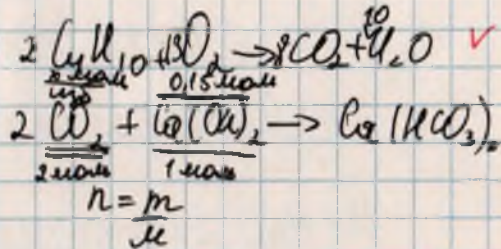 10
2 C₄H₁₀ + 13O₂ → 8CO₂ + H₂O ✓
0,15 моль
2 CO₂ + Ca(OH)₂ → Ca(HCO₃)₂
2 моль 1 моль
n = m/M